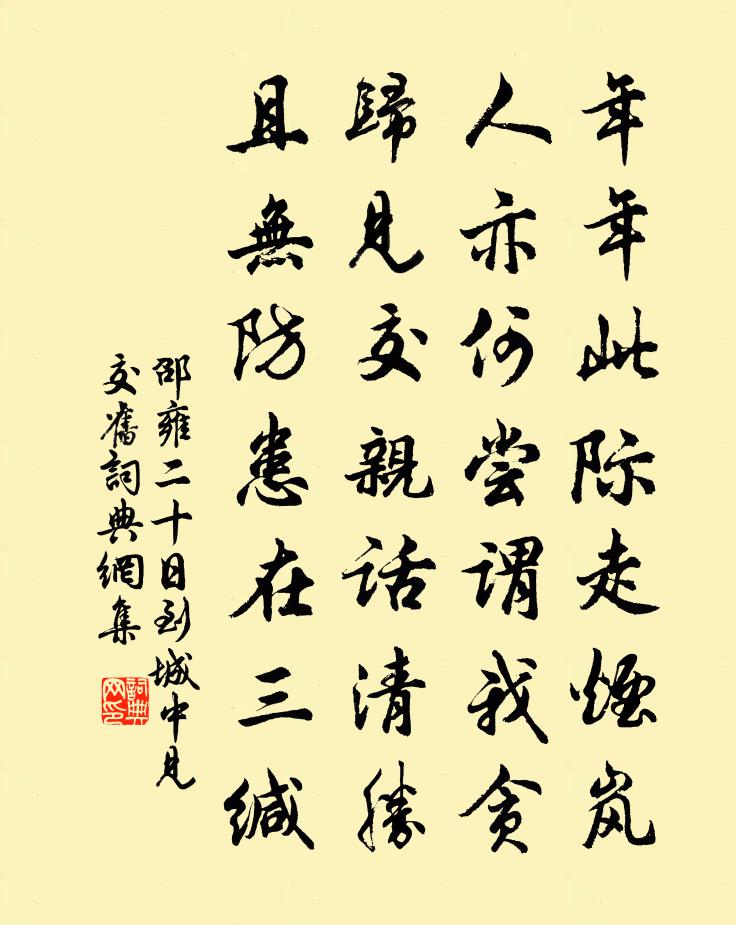 年年此际走煙岚
人亦何尝谓我贪
歸見交親话清勝
且無防患在三缄
邵雍二十日到城中見
交舊詞典網集
詞典网印